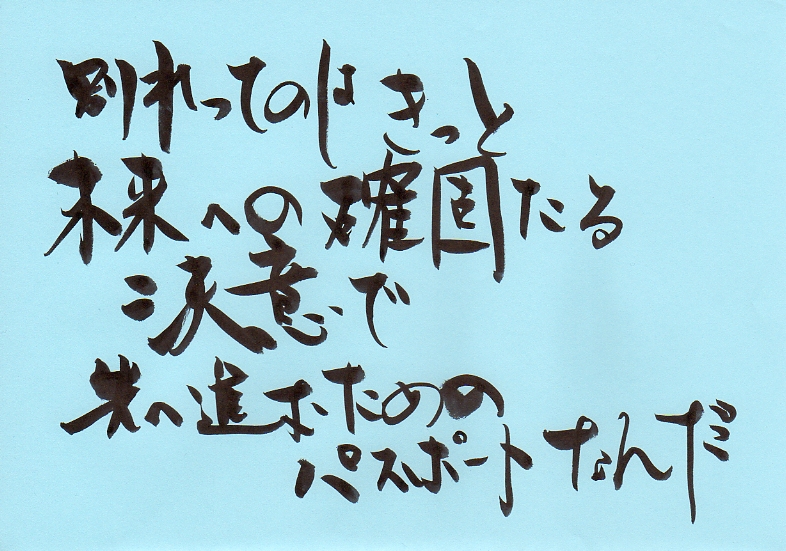 別れってのは きっと
未来への確固たる
決意で
先へ進むための
パスポートなんだ